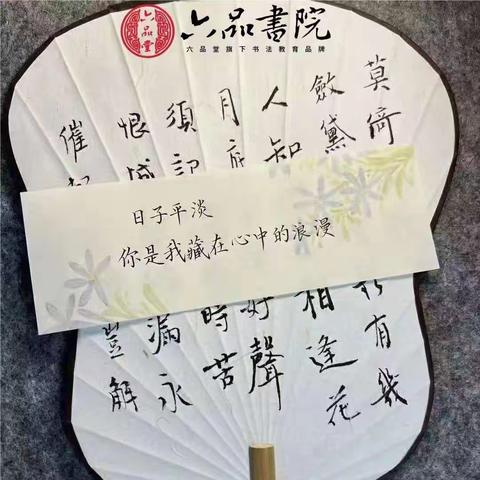 六品堂
六品書院
六品堂旗下书法教育品牌
日子平淡
你是我藏在心中的浪漫
莫倚
有幾
斂黛
相逢花
人知
聲
月底
時苦
須記
漏永
恨
豈解
催